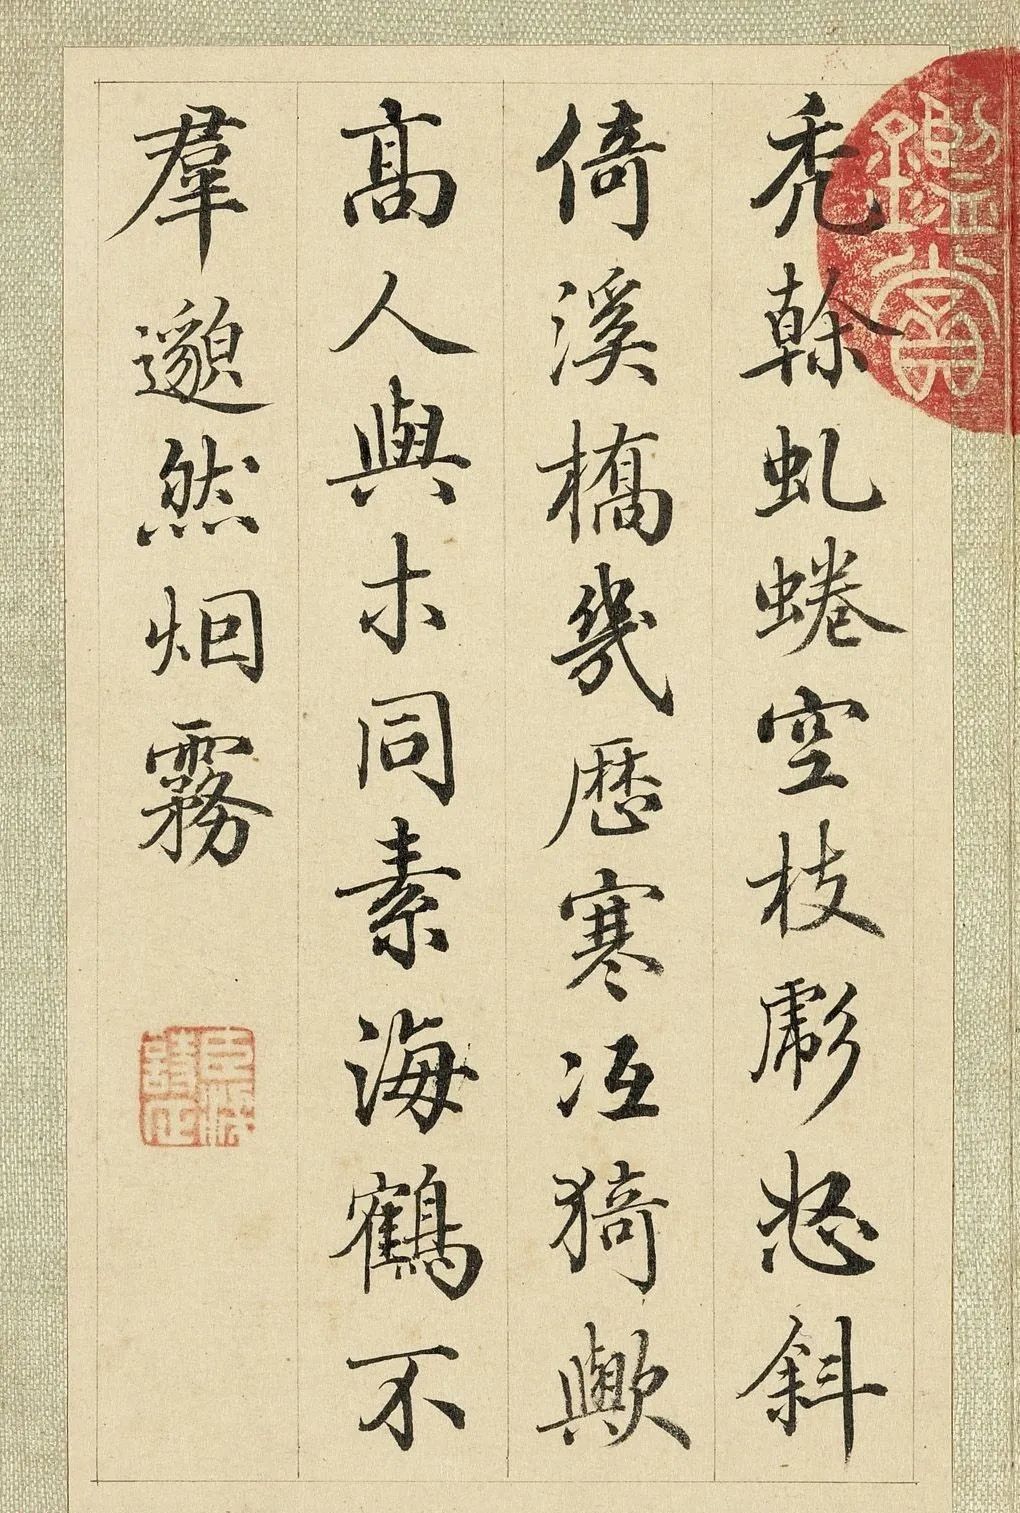 禿榦虬蜷空枝彪怒斜
倚溪橋幾歷寒冱猗歟
高人與木同素海鶴不
羣邈然烟霧
鑑賞
臣梁詩正